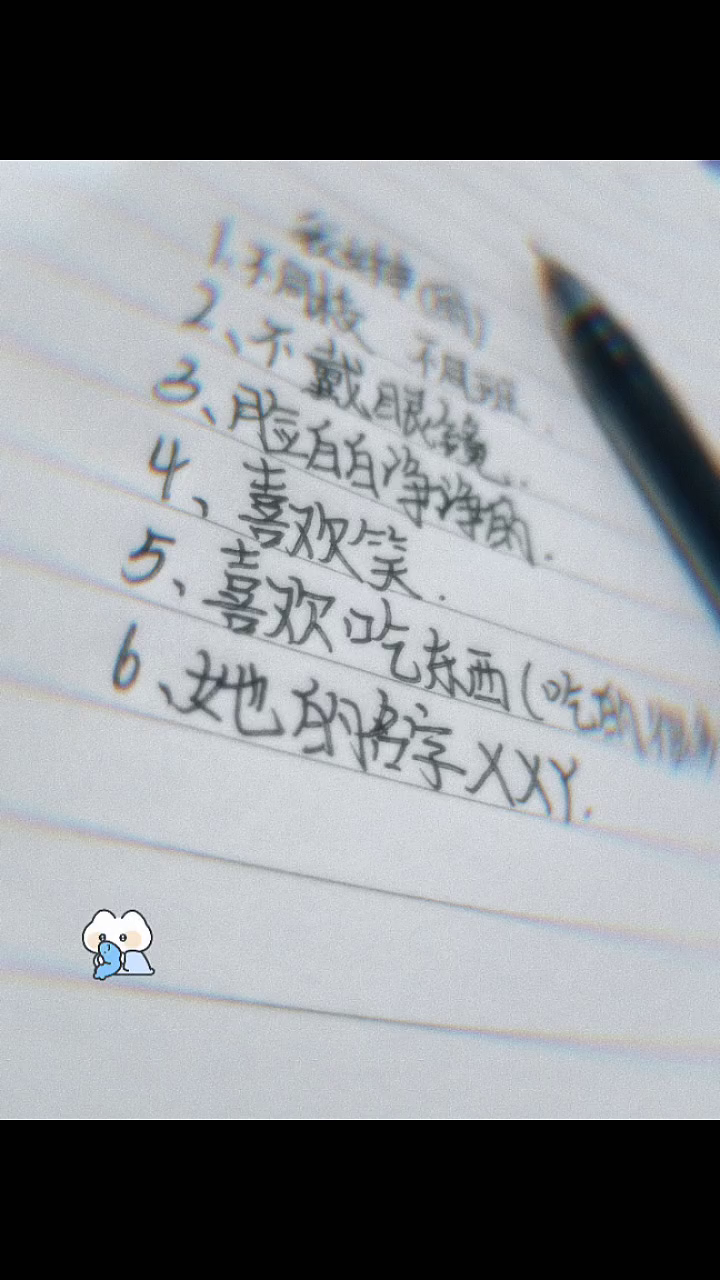 1.不同校 不同班.
2、不戴眼镜..
3、脸白白净净的.
4、喜欢笑.
5、喜欢吃东西(吃的
6、她的名字XXY.